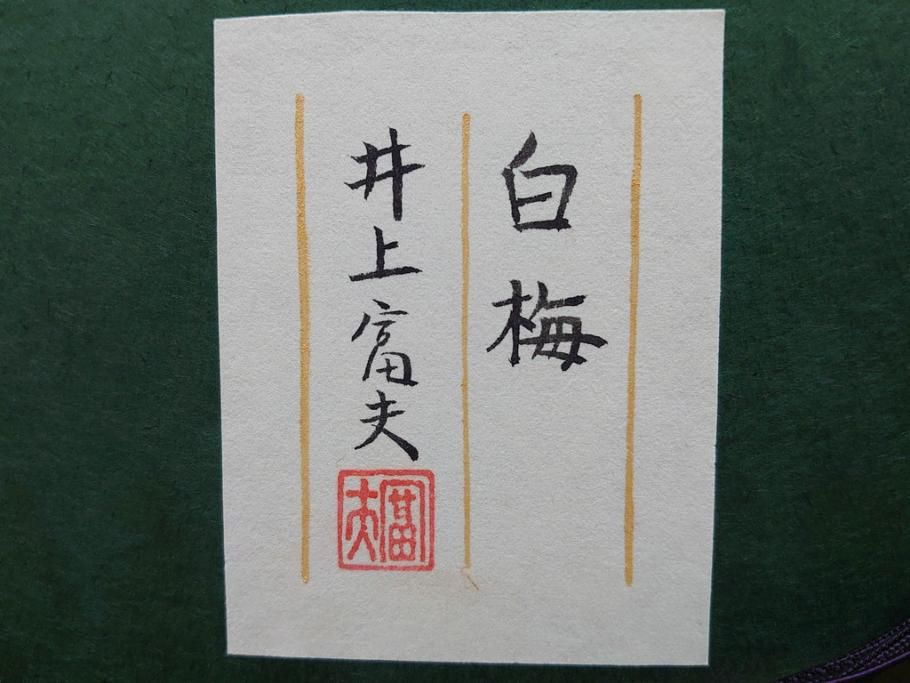 白梅
井上富夫
富夫